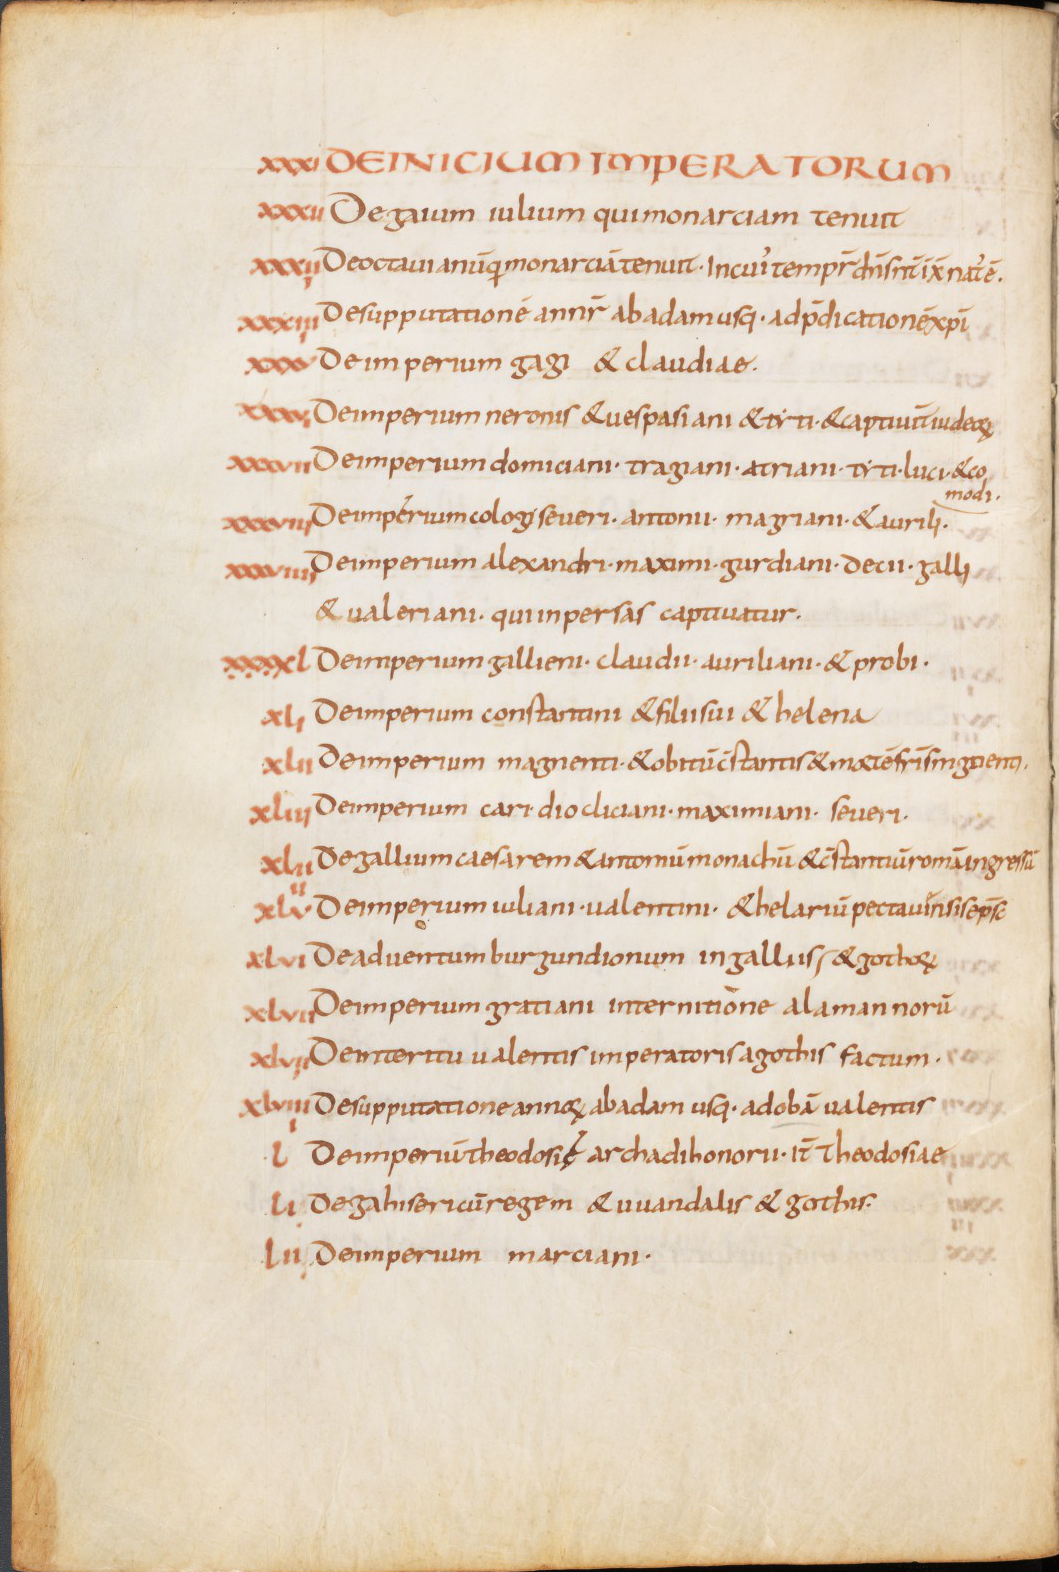 xxxi DE INICIUM IMPERATORUM
xxxii De gaium iulium qui monarciam tenuit
xxxiii De octauianū q monarciā tenuit· In cui' tempr̄ dn̄s nt̄ ih̄x nat' ē·
xxxiiii De supputationē annr̄ ab adam usq· ad p̄dicationē xp̄i
xxxv De imperium gagi & claudiae·
xxxvi De imperium neronis & uespasiani & tyti· & captiuit̄ iudeoꝝ
xxxvii De imperium domiciani· tragiani· atriani· tyti· luci· & co
modi·
xxxviii De imperium cologi seueri· antonii· magriani· & aurili·
xxxviiii De imperium alexandri· maximi· gurdiani· decii· galli
& ualeriani· qui in persas captiuatur·
xxxxl De imperium gallieni· claudii· auriliani· & probi·
xli De imperium constantini & filii sui & helena
xlii De imperium magnenti· & obitū c̄stantis &
xliii De imperium cari· diocliciani· maximiani· seueri·
xliiii De gallium caesarem & antoniū monachū & c̄stantiū romā ingressū
xlv De imperium iuliani· ualentini· & helariū pectauinsis ep̄sc
xlvi De aduentum burgundionum in galliis & gothoꝝ
xlvii De imperium gratiani internitione alamannorū
xlviii De interitu ualentis imperatoris a gothis factum·
xlviiii De supputatione annoꝝ ab adam usq· ad obā ualentis
l De imperiū theodosi archadi honorii· it̄ theodosiae
li De gahisericū regem & uuandalis & gothis·
lii De imperium marciani·